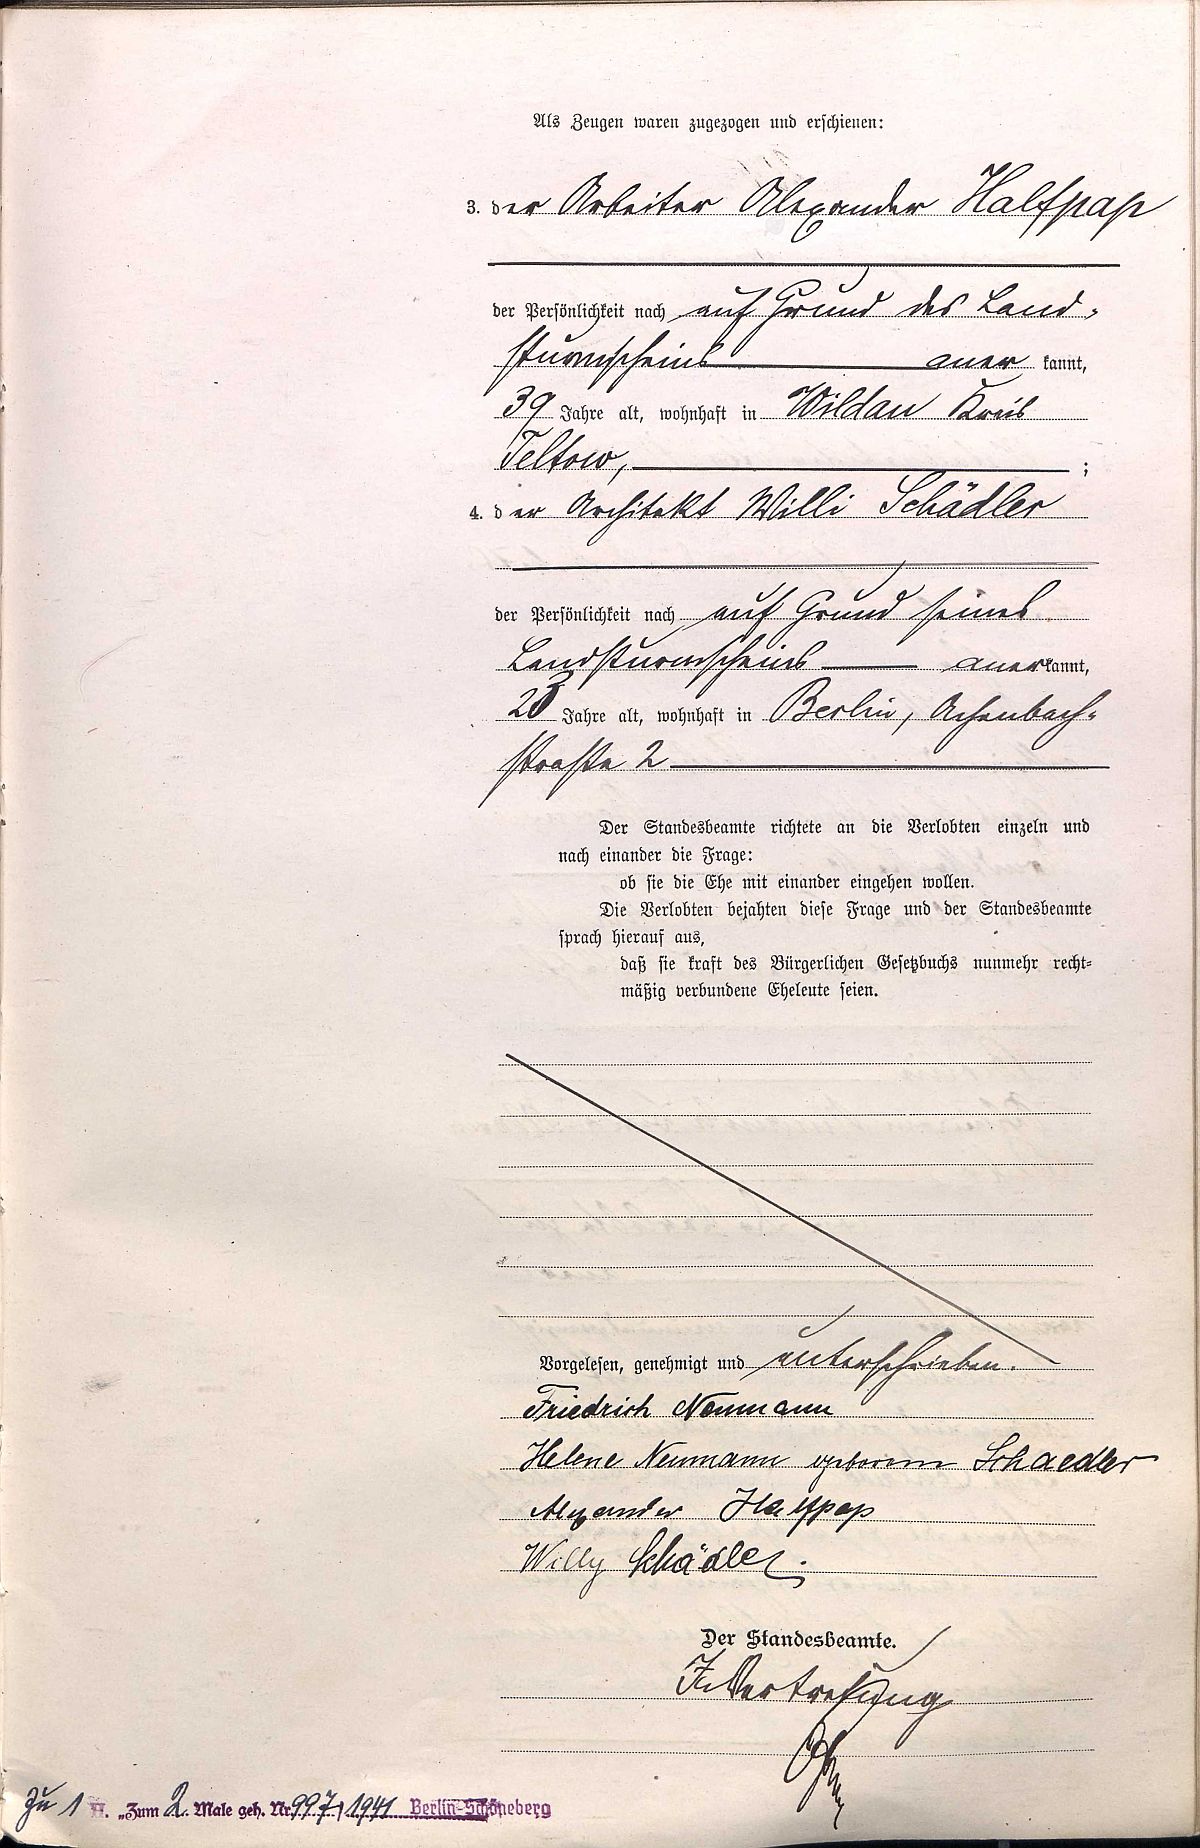 Als Zeugen waren zugezogen und erschienen:
3. der Arbeiter Alexander Halfpap
der Persönlichkeit nach auf Grund des Land-
sturmscheins anerkannt,
39 Jahre alt, wohnhaft in Wildau Kreis
Teltow, ;
4. der Architekt Willi Schädler
der Persönlichkeit nach auf Grund seines
Landsturmscheins anerkannt,
Jahre alt, wohnhaft in Berlin, Achenbach-
straße 2
Der Standesbeamte richtete an die Verlobten einzeln und
nach einander die Frage:
ob sie die Ehe mit einander eingehen wollen.
Die Verlobten bejahten diese Frage und der Standesbeamte
sprach hierauf aus,
daß sie kraft des Bürgerlichen Gesetzbuchs nunmehr recht-
mäßig verbundene Eheleute seien.
Vorgelesen, genehmigt und unterschrieben.
Friedrich Neumann
Helene Neumann geborene Schaedler
Alexander Halfpap
Willy Schädler.
Der Standesbeamte.
In Vertretung
Zu 1 "Zum 2. Male geh. Nr. 997/1941 Berlin-Schöneberg